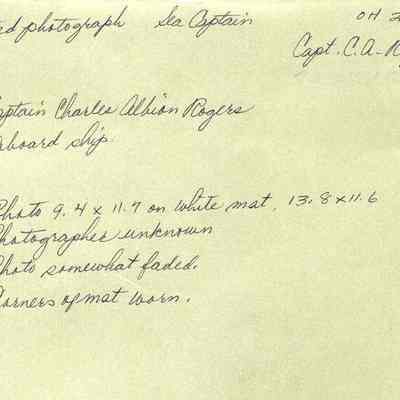 ed photograph Sea Captain OH 2
Capt. C.A. R
aptain Charles Albion Rogers
aboard ship.
Photo 9.4 x 11.7 on white mat, 13.8 x 11.6
Photographer unknown
Photo somewhat faded.
Corners of mat worn.